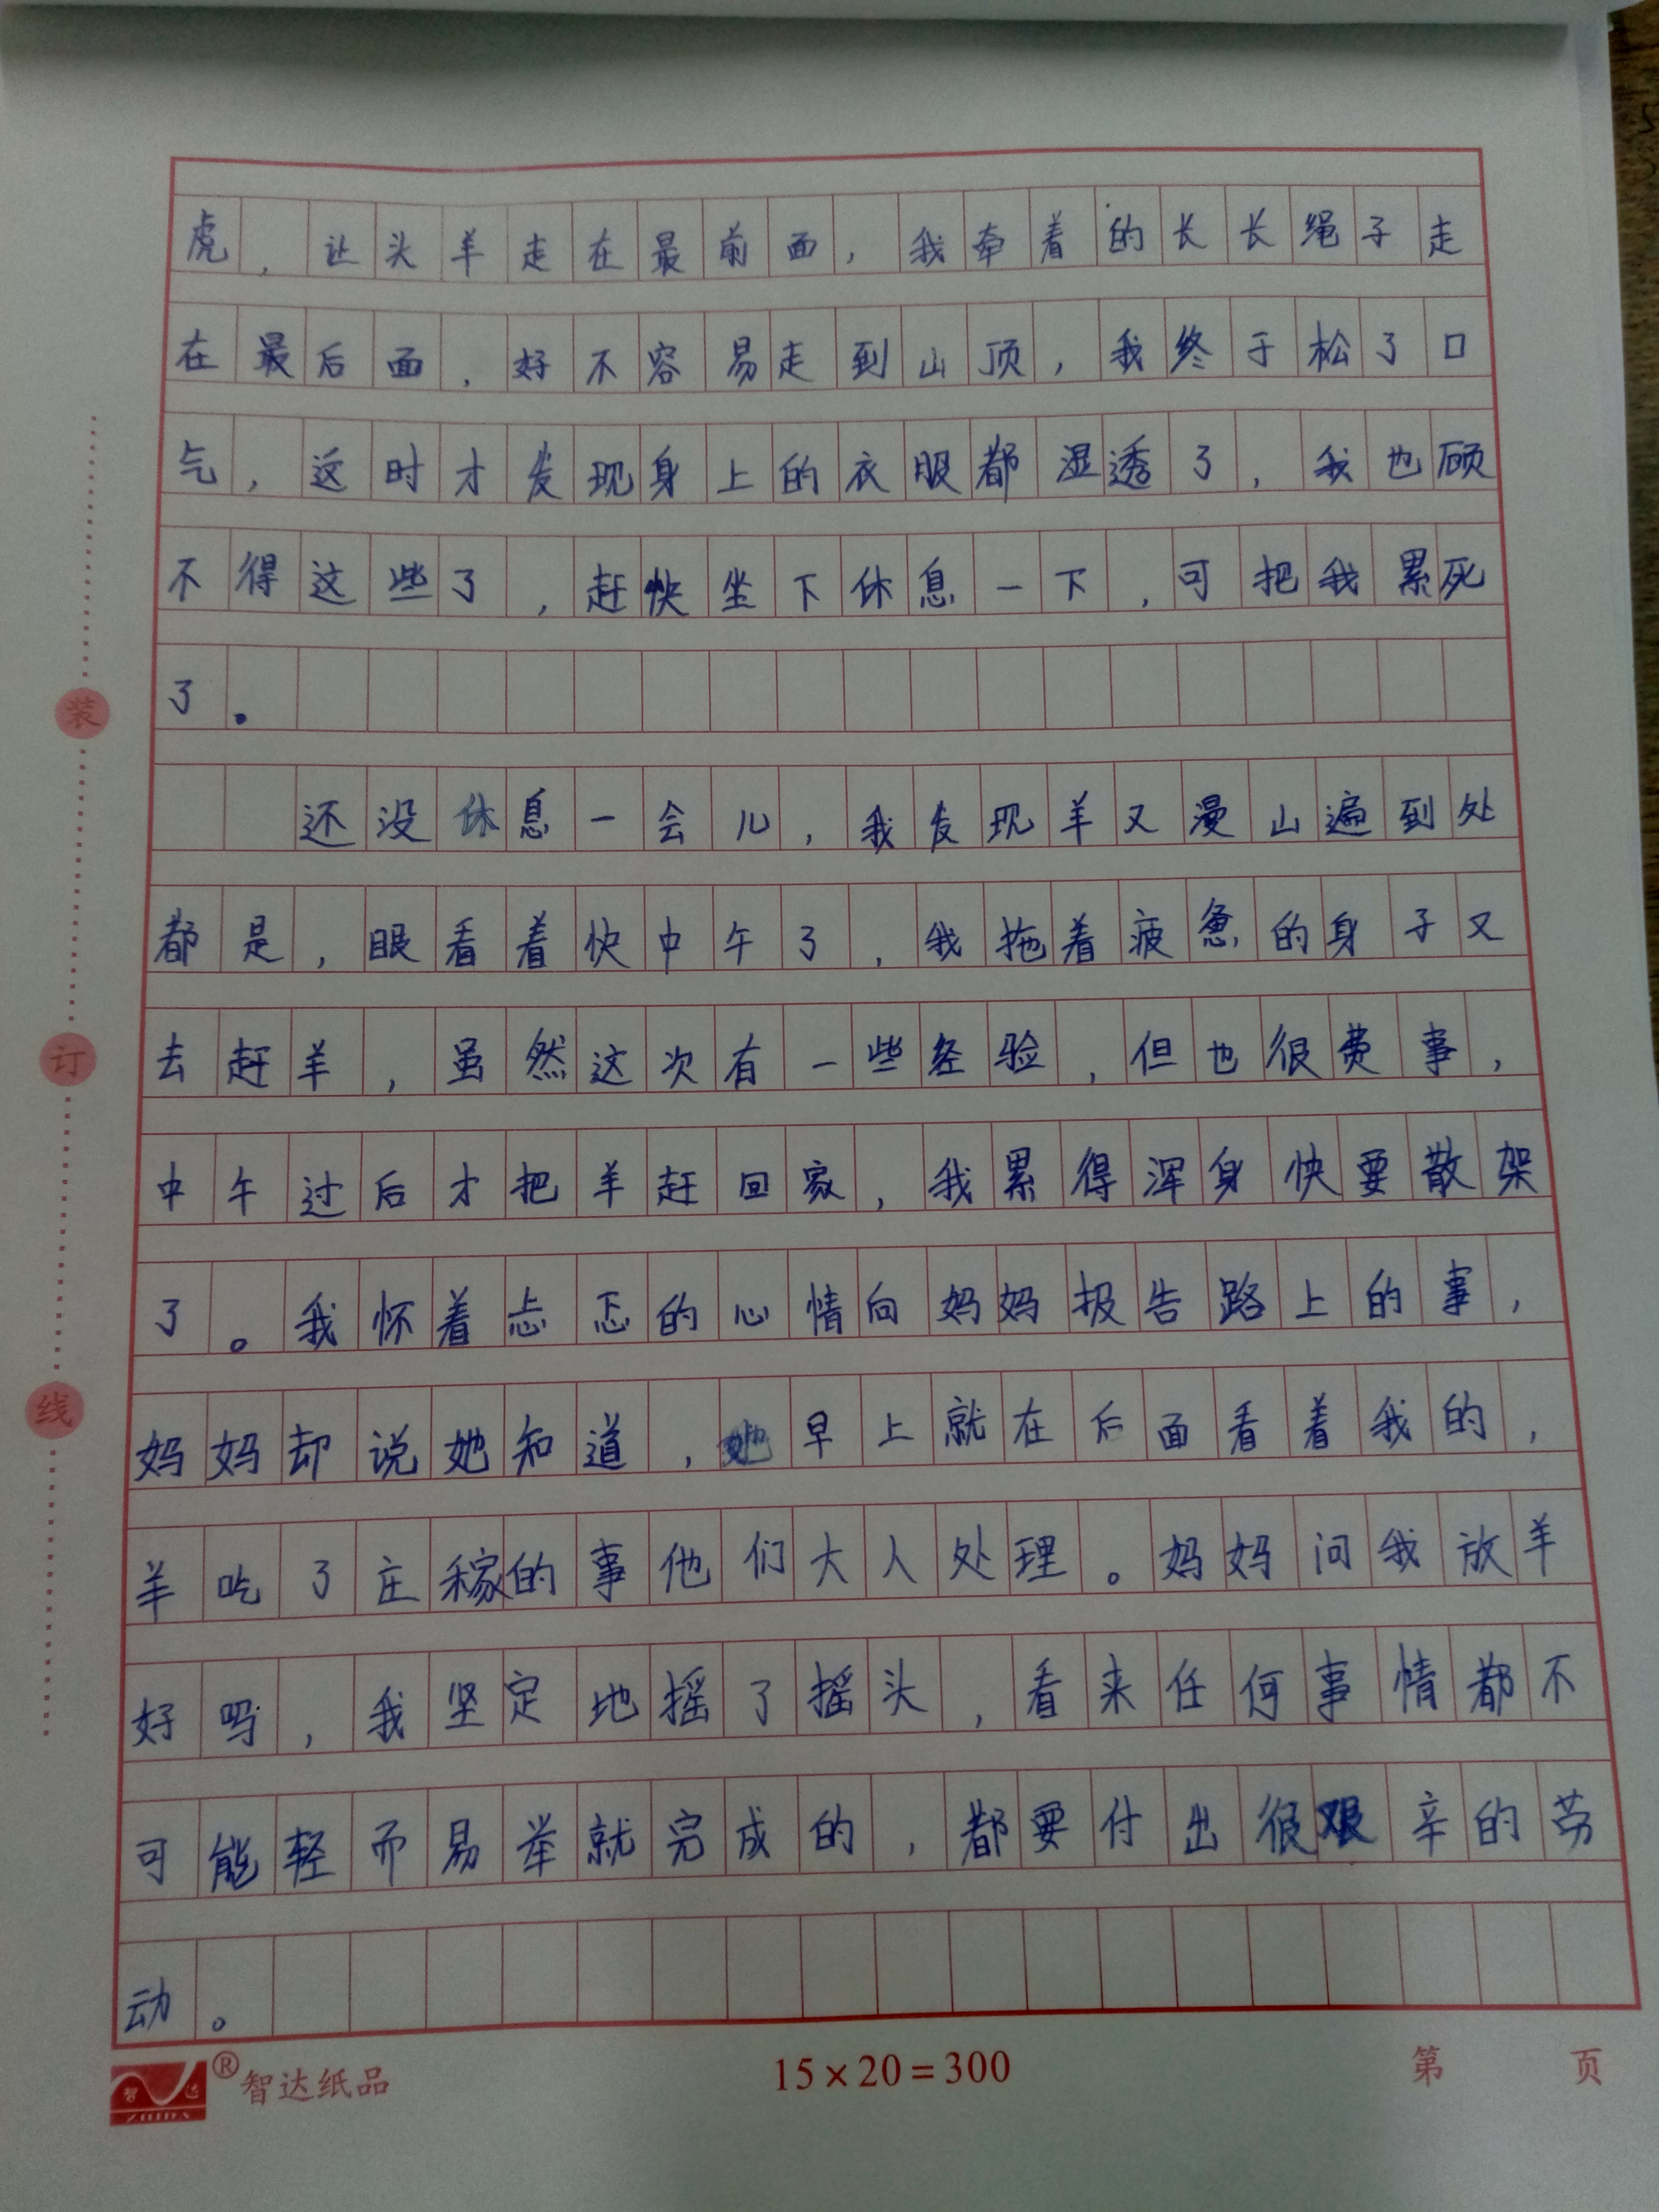 虎，让头羊走在最前面，我牵着的长长绳子走
在最后面，好不容易走到山顶，我终于松了口
气，这时才发现身上的衣服都湿透了，我也顾
不得这些了，赶快坐下休息一下，可把我累死
了。
还没休息一会儿，我发现羊又漫山遍到处
都是，眼看着快中午了，我拖着疲惫的身子又
去赶羊，虽然这次有一些经验，但也很费事，
中午过后才把羊赶回家，我累得浑身快要散架
了。我怀着忐忑的心情向妈妈报告路上的事，
妈妈却说她知道，她早上就在后面看着我的，
羊吃了庄稼的事他们大人处理。妈妈问我放羊
好吗，我坚定地摇了摇头，看来任何事情都不
可能轻而易举就完成的，都要付出很艰辛的劳
动。
装
订
线
智达
ZHIDA
®智达纸品
15×20=300
第 页